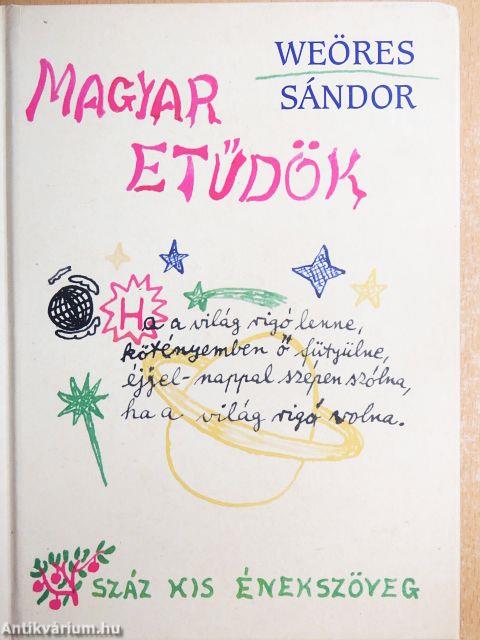 WEÖRES
SÁNDOR
MAGYAR
ETŰDÖK
Ha a világ rigó lenne,
kötényemben ő fütyülne,
éjjel-nappal szépen szólna,
ha a világ rigó volna.
SZÁZ KIS ÉNEKSZÖVEG
Antikvárium.hu